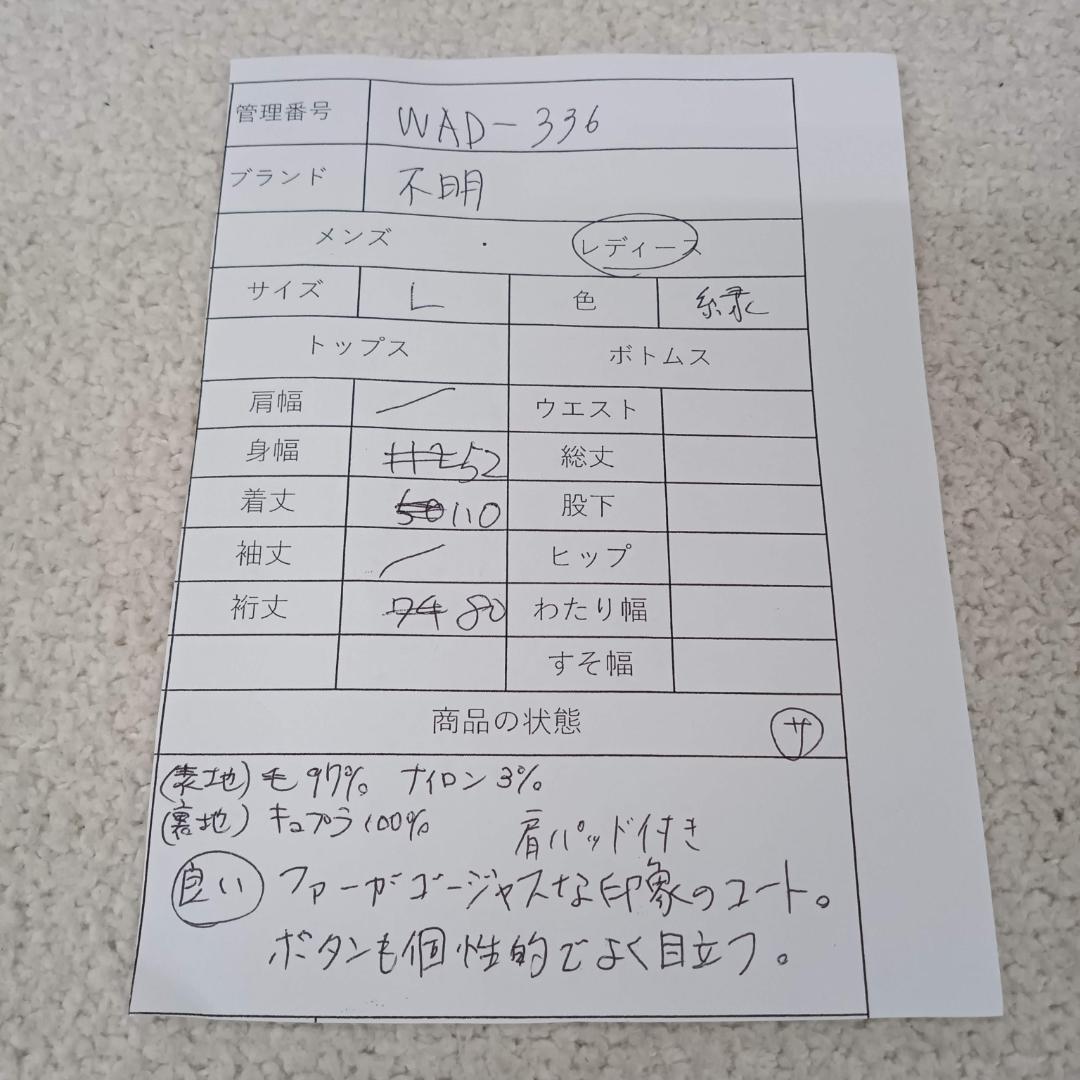 管理番号 WAD-336
ブランド 不明
メンズ ・ レディース
サイズ L 色 緑
トップス ボトムス
肩幅 ／ ウエスト
身幅 52 総丈
着丈 50 110 股下
袖丈 ／ ヒップ
裄丈 74 80 わたり幅
すそ幅
商品の状態 サ
(表地) 毛97% ナイロン3%
(裏地) キュプラ100% 肩パッド付き
良い ファーがゴージャスな印象のコート。
ボタンも個性的でよく目立つ。